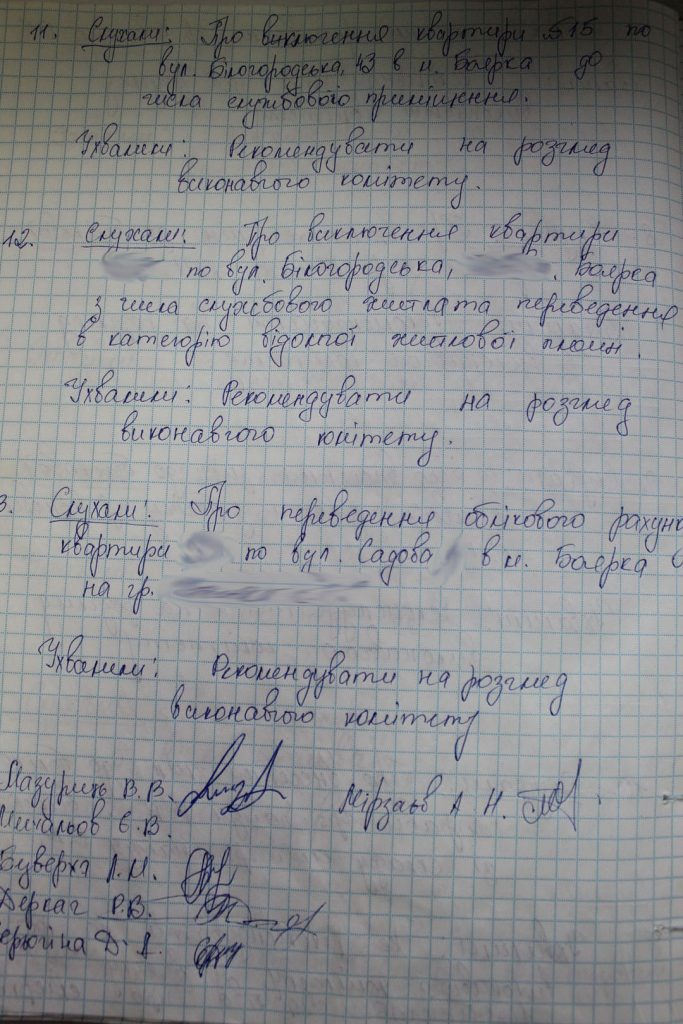 11. Слухали: Про виключення квартири №515 по
вул. Білогородська, 43 в м. Боярка до
числа службового приміщення.
Ухвалили: Рекомендувати на розгляд
виконавчого комітету.
12. Слухали: Про виключення квартири
по вул. Білогородська, Боярка
з числа службового житла та переведення
в категорію відомчої житлової площі.
Ухвалили: Рекомендувати на розгляд
виконавчого комітету.
3. Слухали: Про переведення облікового рахунк
квартири по вул. Садова в м. Боярка
на гр.
Ухвалили: Рекомендувати на розгляд
виконавчого комітету
Мазурик В.В. Мірзаєв А Н.
Михальов Є.В.
Буверха Л.М.
Деркач Р.В.
Д. А.